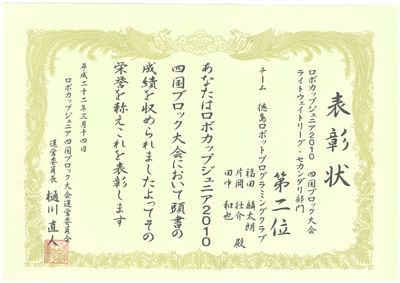 表彰状
ロボカップジュニア2010 四国ブロック大会
ライトウェイトリーグ・セカンダリ部門
第二位
チーム 徳島ロボットプログラミングクラブ
福田 麟太朗
片岡 壮介 殿
田中 和也
あなたはロボカップジュニア2010
四国ブロック大会において頭書の
成績を収められましたよってその
栄誉を称えこれを表彰します
平成二十二年三月十四日
ロボカップジュニア四国ブロック大会運営委員会
運営委員長 樋川 直人